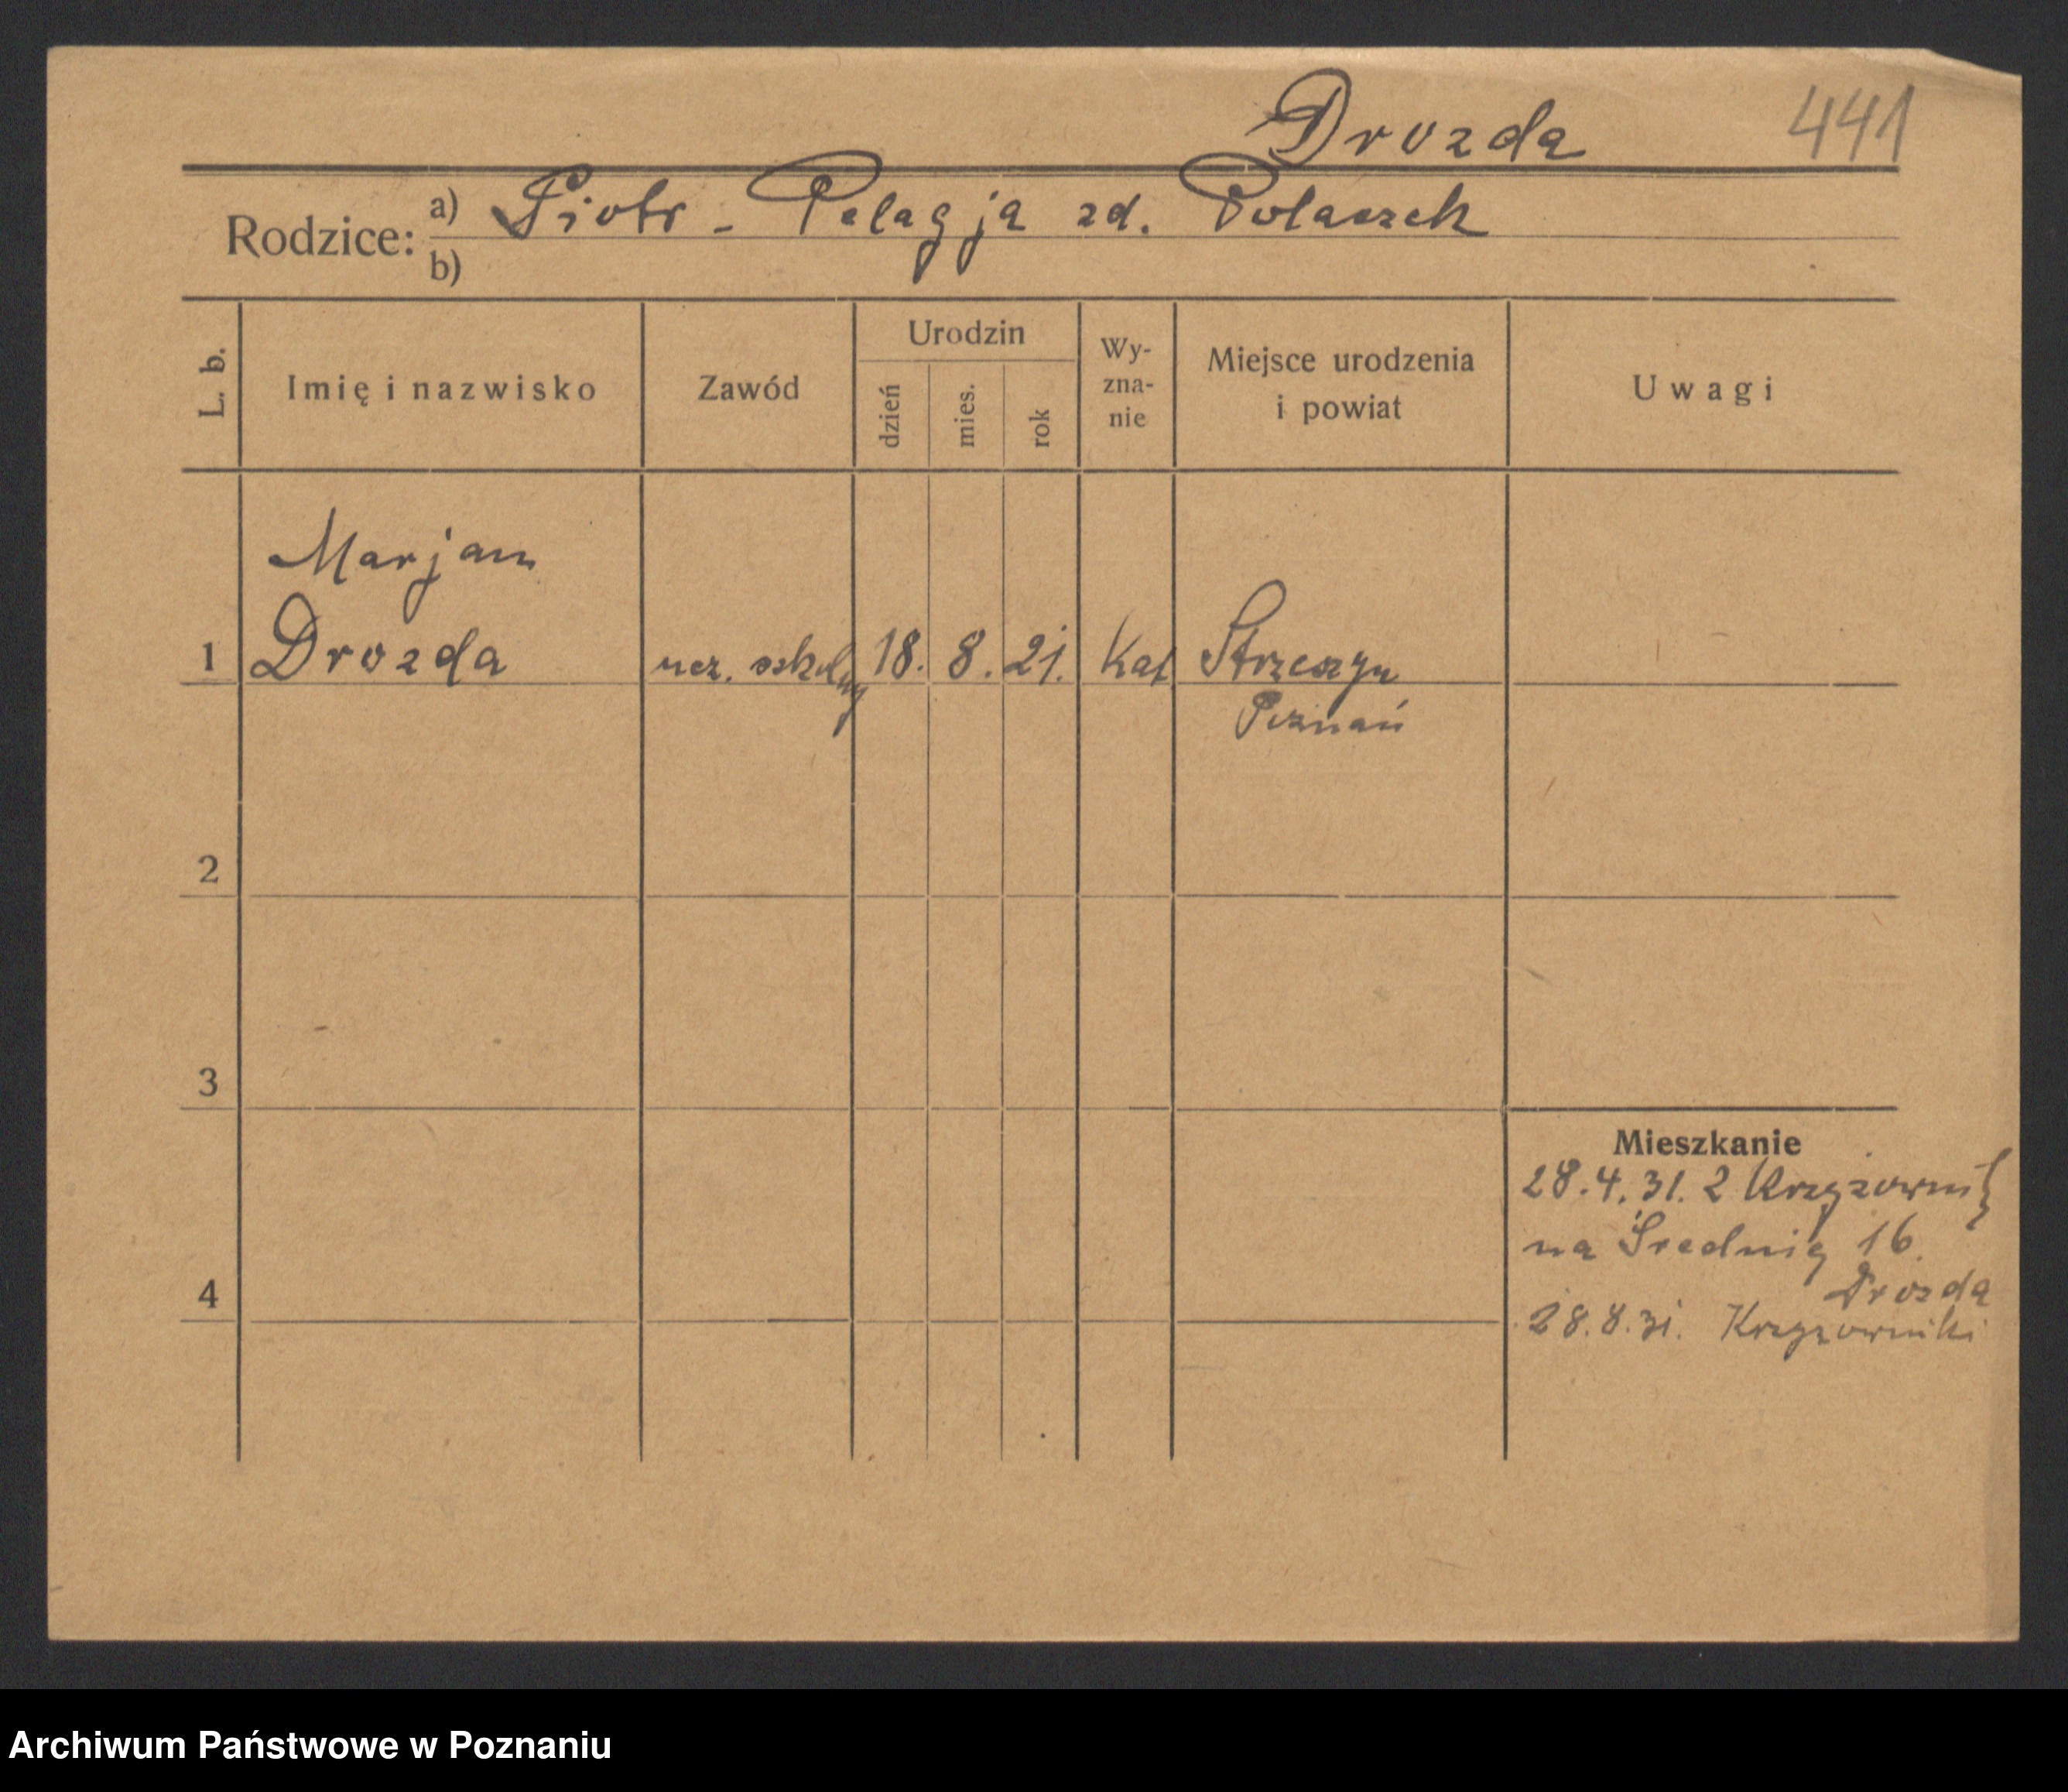 Drozda 441
Rodzice: a) Piotr - Pelagja zd. Polaszek
b)
L. b. Imię i nazwisko Zawód Urodzin dzień mies. rok Wy-zna-nie Miejsce urodzenia i powiat Uwagi
Marjan
1 Drozda ucz. szkolny 18. 8. 21. Kat Strzeszyn
Poznań
2
3
Mieszkanie
28.4.31. z Krzyżownik
na Średnią 16.
Drozda
4
28.8.31. Krzyżowniki
Archiwum Państwowe w Poznaniu